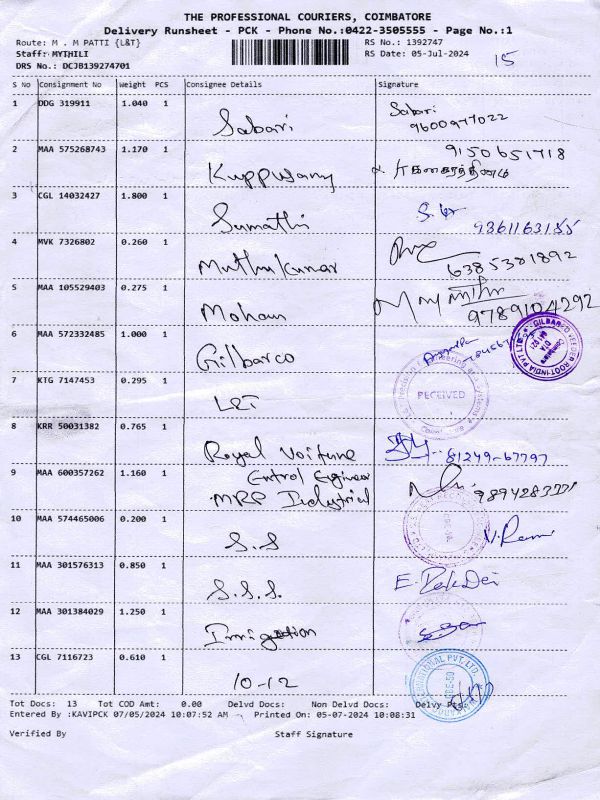 THE PROFESSIONAL COURIERS, COIMBATORE
Delivery Runsheet - PCK - Phone No.:0422-3505555 - Page No.:1
Route: M . M PATTI {L&T}
RS No.: 1392747
Staff: MYTHILI
RS Date: 05-Jul-2024
15
DRS No.: DCJB139274701
S No Consignment No Weight PCS Consignee Details Signature
1 DDG 319911 1.040 1 Sabari Sabari
9600977022
2 MAA 575268743 1.170 1 Kuppusamy 9150651718
3 CGL 14032427 1.800 1 Sumathi
9361163155
4 MVK 7326802 0.260 1 Muthukumar
6385381892
5 MAA 105529403 0.275 1 Mohan
9789104292
6 MAA 572332485 1.000 1 Gilbarco
7 KTG 7147453 0.295 1 L&T RECEIVED
8 KRR 50031382 0.765 1 Royal Voiture 81249-67797
9 MAA 600357262 1.160 1 Control Engineer
MRP Industrial 9894283771
10 MAA 574465006 0.200 1 S.S V.Rami
11 MAA 301576313 0.850 1 S.S.S.
12 MAA 301384029 1.250 1 Irrigation
13 CGL 7116723 0.610 1 10-12
Tot Docs: 13 Tot COD Amt: 0.00 Delvd Docs: Non Delvd Docs: Delvy Pct:
Entered By :KAVIPCK 07/05/2024 10:07:52 AM Printed On: 05-07-2024 10:08:31
Verified By Staff Signature